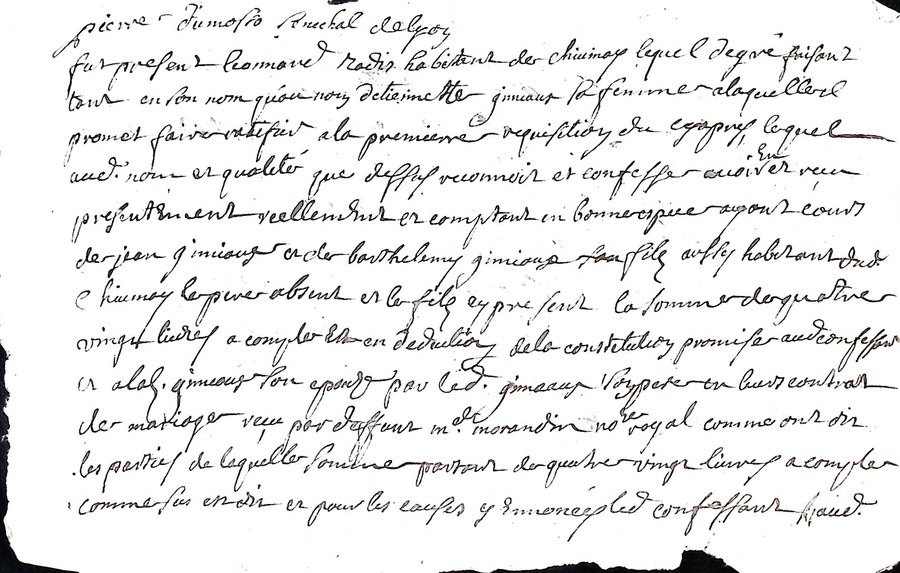 pierre dumosso senechal de lyon
fut present leonnard radis habitant de chiuinay lequel de gré faisant
tant en son nom quau nom detiennette gimiaux sa femme a laquelle il
promet faire ratifier a la premierre requisition du cy apres lequel
aud. nom et qualité que dessus reconnoit et confesse auoir eu et receu
presentement reellement et comptant en bonne espece ayant cours
de jean gimiaux et de barthelemy gimiaux son filz aussy habitant dud.
Chiuinay le pere absent et le filz cy present la somme de quatre
vingt liures a compte et en deduction de la constitution promise aud confessant
et a lad. gimiaux son epouze par led. gimiaux son pere en leur contrat
de mariage receu par deffunt me. morandin nore royal comme ont dit
les parties de laquelle somme partant de quatre vingt liures a compte
comme sus est dit et pour les causes y enoncées led confessant aud.